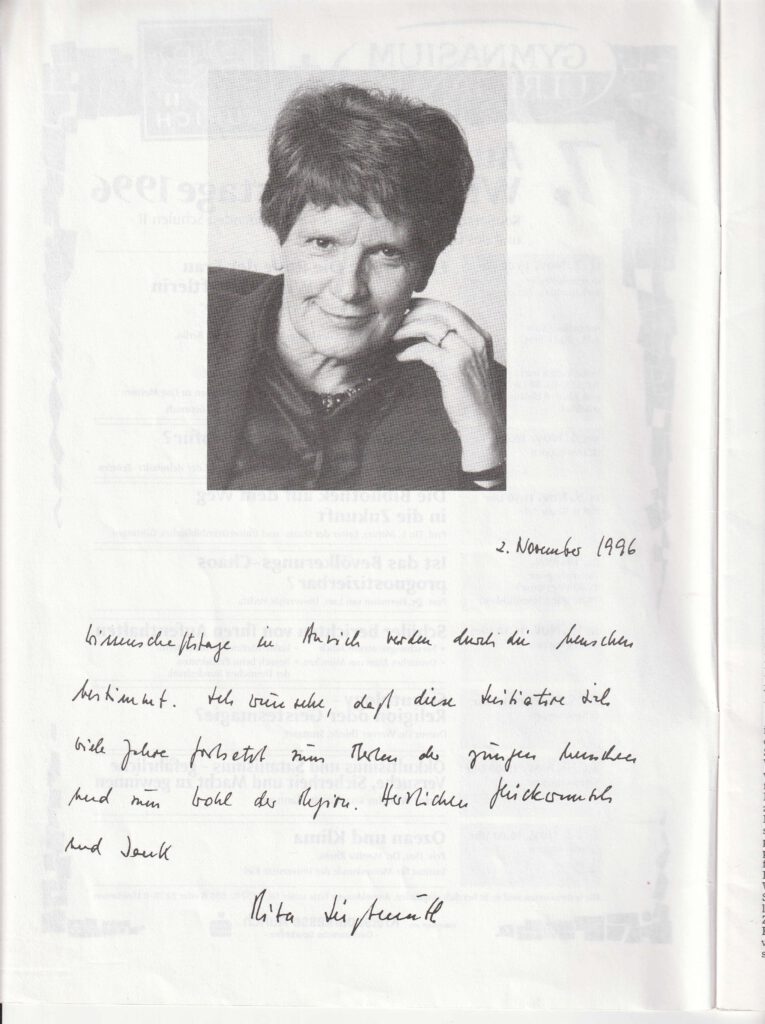 2. November 1996
Wissenschaftstage in Aurich werden durch die Menschen
bestimmt. Ich wünsche, daß diese Initiative sich
viele Jahre fortsetzt zum Besten der jungen Menschen
und zum Wohl der Region. Herzlichen Glückwunsch
und Dank
Rita Süssmuth